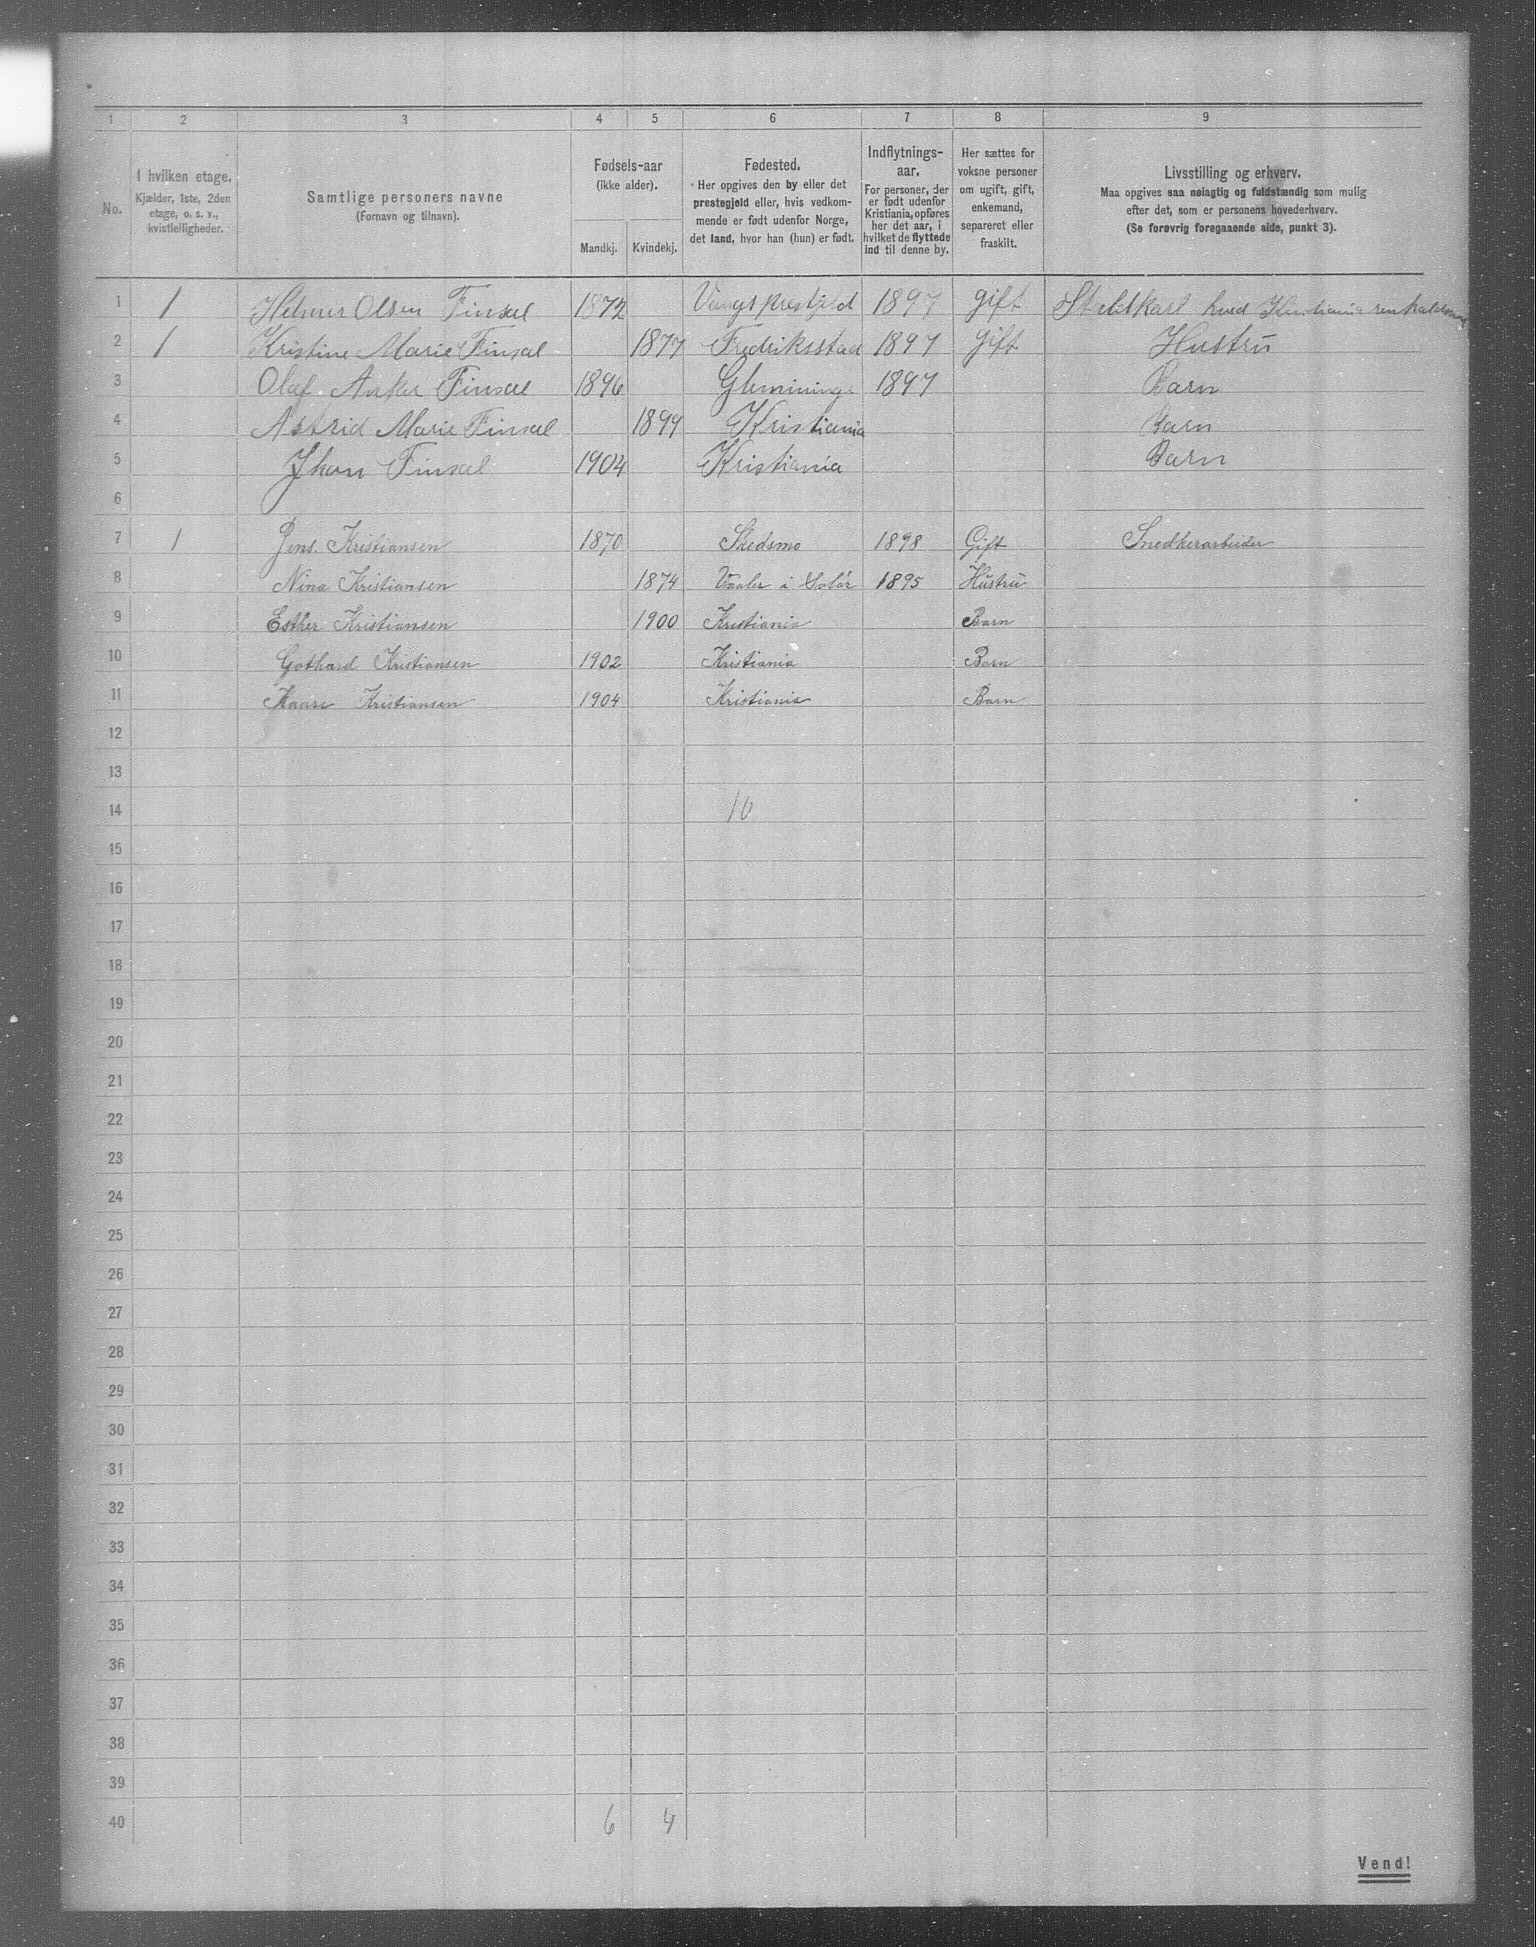 1 2 3 4 5 6 7 8 9
No.
I hvilken etage.
Kjælder, 1ste, 2den
etage, o. s. v.,
kvistleiligheder.
Samtlige personers navne
(Fornavn og tilnavn).
Fødsels-aar
(ikke alder).
Mandkj. Kvindekj.
Fødested.
Her opgives den by eller det
prestegjeld eller, hvis vedkom-
mende er født udenfor Norge,
det land, hvor han (hun) er født.
Indflytnings-
aar.
For personer, der
er født udenfor
Kristiania, opføres
her det aar, i
hvilket de flyttede
ind til denne by.
Her sættes for
voksne personer
om ugift, gift,
enkemand,
separeret eller
fraskilt.
Livsstilling og erhverv.
Maa opgives saa nøiagtig og fuldstændig som mulig
efter det, som er personens hovederhverv.
(Se forøvrig foregaaende side, punkt 3).
1 1 Helmer Olsen Finsal 1872 Vangs prestjeld 1897 gift Staldkarl hved
2 1 Kristine Marie Finsal 1877 Fredriksstad 1897 gift Hustru
3 Olaf Anker Finsal 1896 Glemminge 1897 Barn
4 Astrid Marie Finsal 1899 Kristiania Barn
5 Jhan Finsal 1904 Kristiania Barn
6
7 1 Jens. Kristiansen 1870 Skedsmo 1898 Gift Snedkerarbeider
8 Nina Kristiansen 1874 Vaaler i Solør 1895 Hustru
9 Esther Kristiansen 1900 Kristiania Barn
10 Gothard Kristiansen 1902 Kristiania Barn
11 Kaare Kristiansen 1904 Kristiania Barn
12
13
14 10
15
16
17
18
19
20
21
22
23
24
25
26
27
28
29
30
31
32
33
34
35
36
37
38
39
40 6 4
Vend!